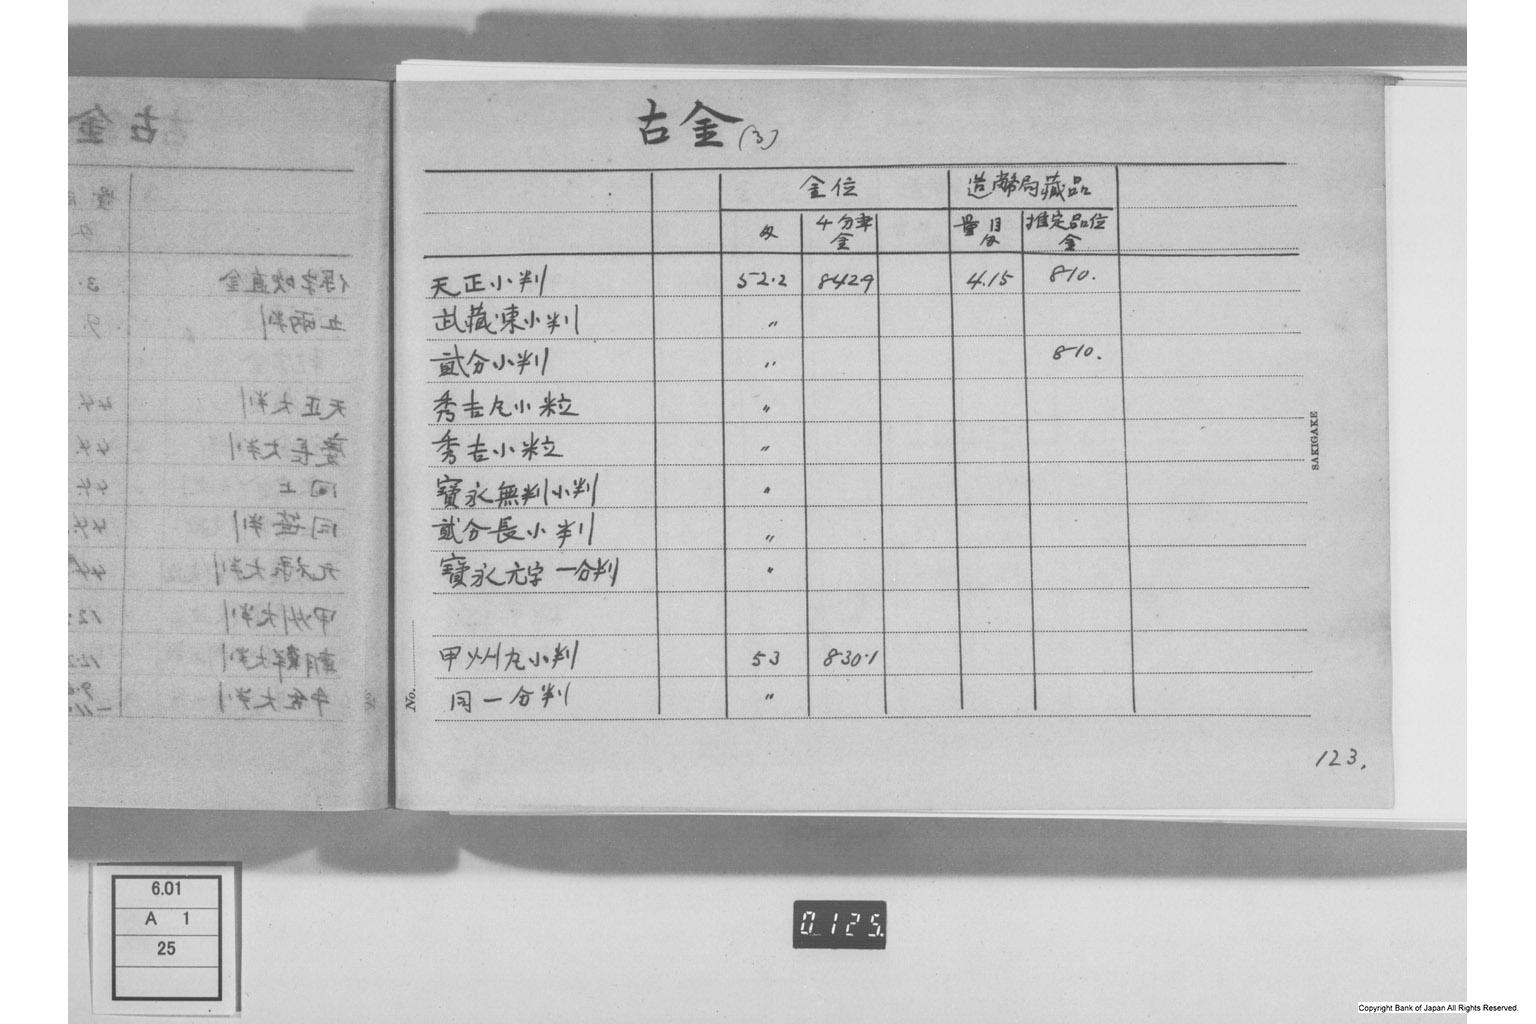 古金(3)
金位 造幣局藏品
匁 4分率金 量目匁 推定品位金
天正小判 52.2 842.9 4.15 810.
武藏凍小判 〃
貳分小判 〃 810.
秀吉丸小粒 〃
秀吉小粒 〃
寶永無判小判 〃
貳分長小判 〃
寶永元字一分判 〃
甲州丸小判 53 830.1
同一分判 〃
No.
SAKIGAKE
123.
保字吹直金 3.
五兩判 9.
天正大判 44.
慶長大判 44.
同上 44.
同笹判 44.
元祿大判 44
甲州大判 12.
朝鮮大判 12.2
6.01
A 1
25
0125.
Copyright Bank of Japan All Rights Reserved.